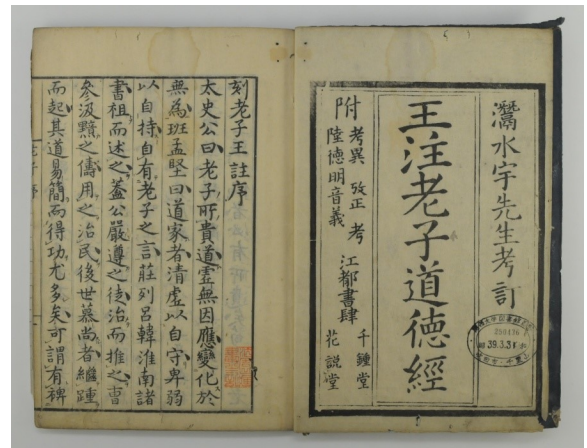 灊水宇先生考訂
王注老子道德經
附
考異 攷正 考
陸德明音義
江都書肆
千鍾堂
花説堂
39.3.31
刻老子王註序
太史公曰老子所貴道虛無因應變化於
無為班孟堅曰道家者清虛以自守卑弱
以自持自有老子之言莊列呂韓淮南諸
書祖而述之蓋公嚴遵之徒治而推之曹
參汲黯之儔用之治民後世慕尚者繼踵
而起其道易簡而得功尤多矣可謂有裨